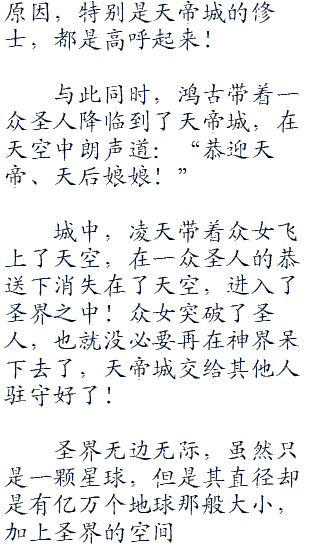 原因，特别是天帝城的修
士，都是高呼起来！
与此同时，鸿古带着一
众圣人降临到了天帝城，在
天空中朗声道：“恭迎天
帝、天后娘娘！”
城中，凌天带着众女飞
上了天空，在一众圣人的恭
送下消失在了天空，进入了
圣界之中！众女突破了圣
人，也就没必要再在神界呆
下去了，天帝城交给其他人
驻守好了！
圣界无边无际，虽然只
是一颗星球，但是其直径却
是有亿万个地球那般大小，
加上圣界的空间